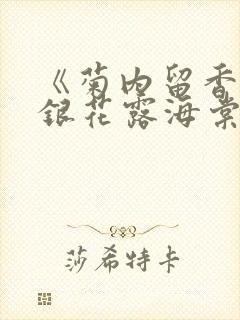 《菊内留香
银花露海棠
莎希特卡